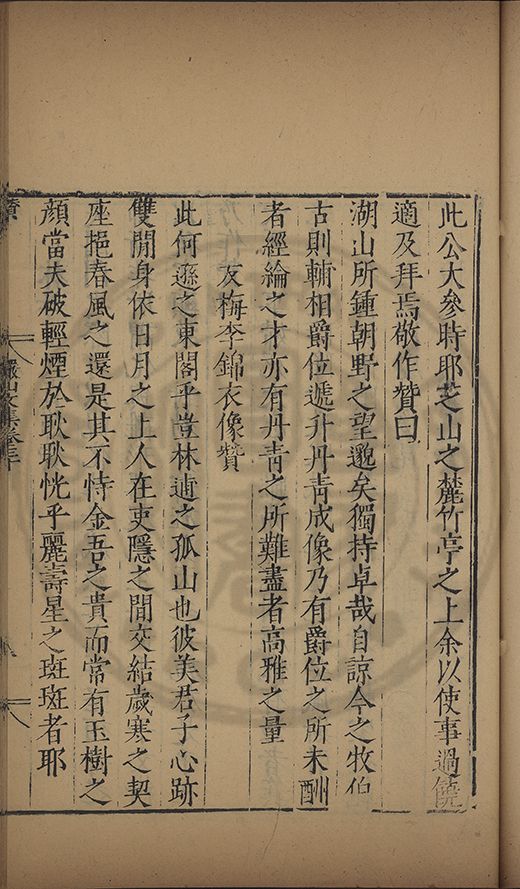 此公大參時耶芝山之麓竹亭之上余以使事過饒
適及拜焉敬作贊曰
湖山所鍾朝野之望邈矣獨持卓哉自諒今之牧伯
古則輔相爵位遞升丹青成像乃有爵位之所未酬
者經綸之才亦有丹青之所難盡者高雅之量
友梅李錦衣像贊
此何遜之東閣乎豈林逋之孤山也彼美君子心跡
雙閒身依日月之上人在吏隱之間交結歲寒之契
座挹春風之還是其不恃金吾之貴而常有玉樹之
顔當夫破輕煙於耿耿恍乎麗壽星之斑斑者耶